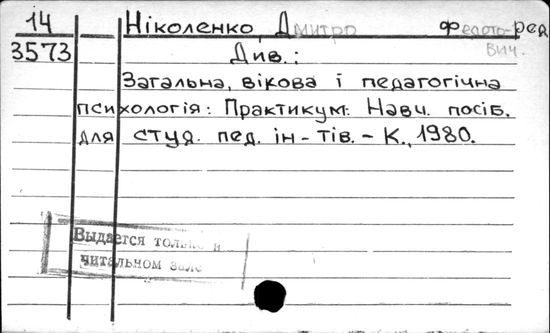 14 Ніколенко, Дмитро Федото-
вич. ред
3573 Див.:
Загальна, вікова і педагогічна
психологія: Практикум: Навч. посіб.
для студ. пед. ін-тів. - К., 1980.
Выдается только в
читальном зале